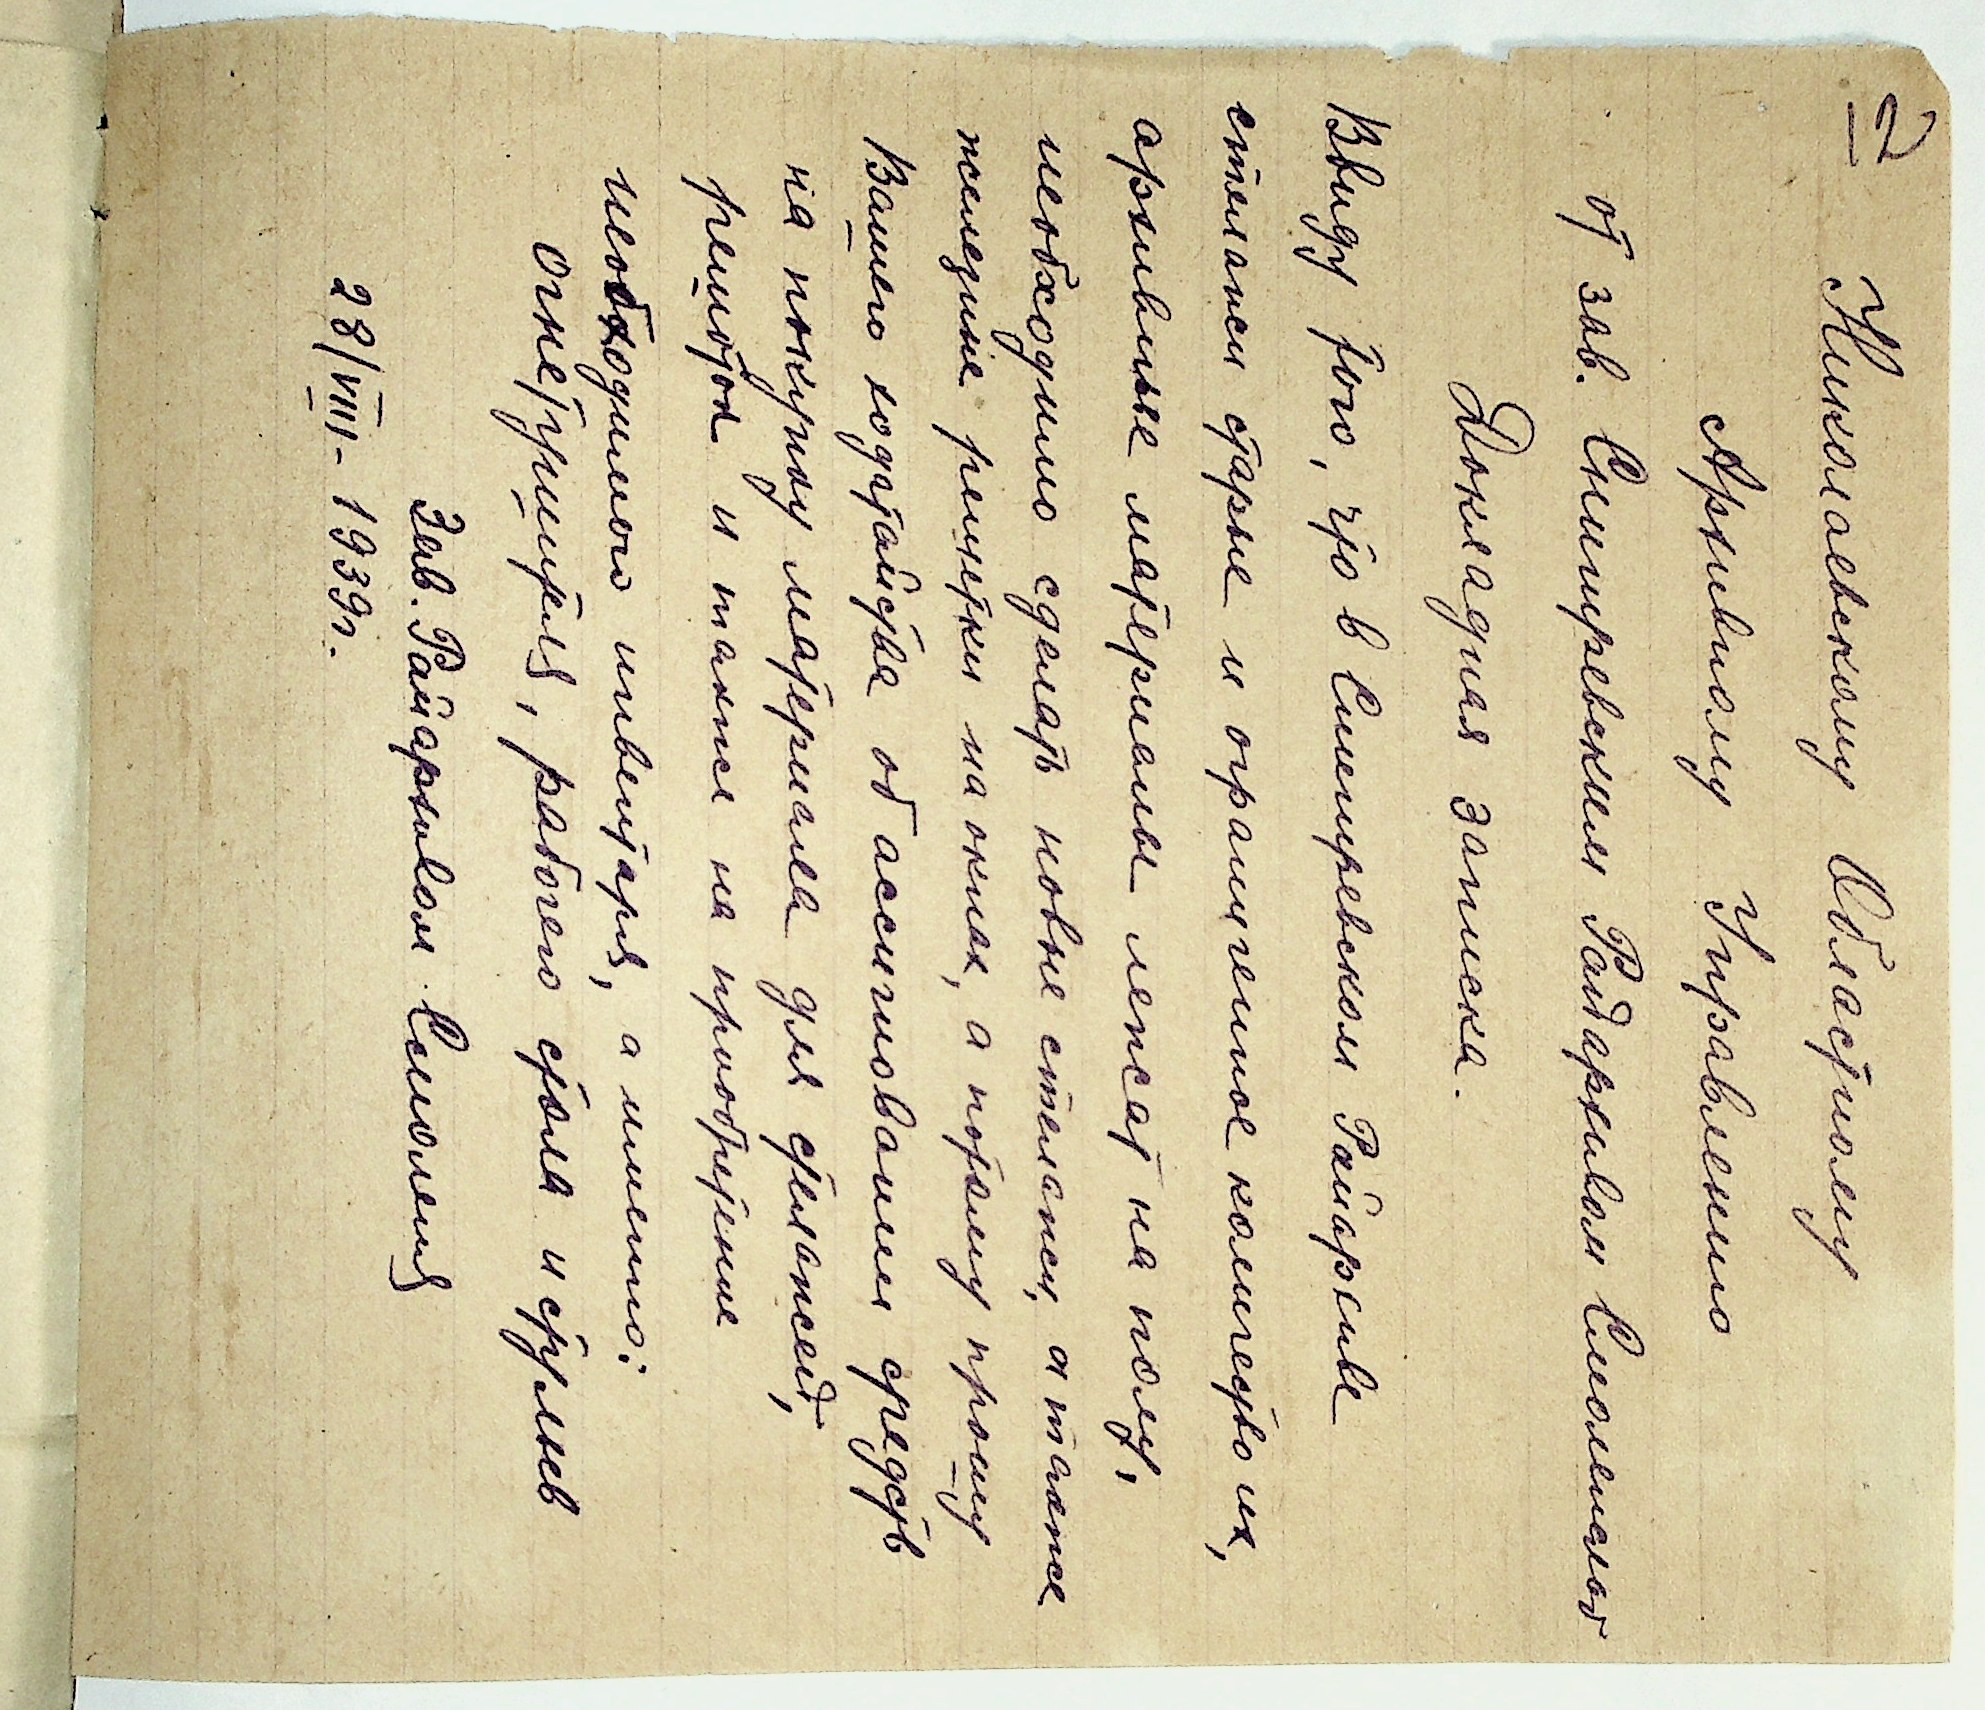 2
Николаевскому Областному
Архивному Управлению
от зав. Снигиревским Райархивом
Докладная записка.
Ввиду того, что в Снигиревском Райархиве
стелажи старые и ограниченное количество их,
архивные материалы лежат на полу,
необходимо сделать новые стелажи, а также
железные решетки на окнах, а потому прошу
Вашего ходатайства об асигновании средств
на покупку материала для стелажей,
решоток и также на приобретение
необходимого инвентаря, а именно:
Огнетушителя, рабочего стола и стульев
Зав. Райархивом
28/VIII - 1939г.